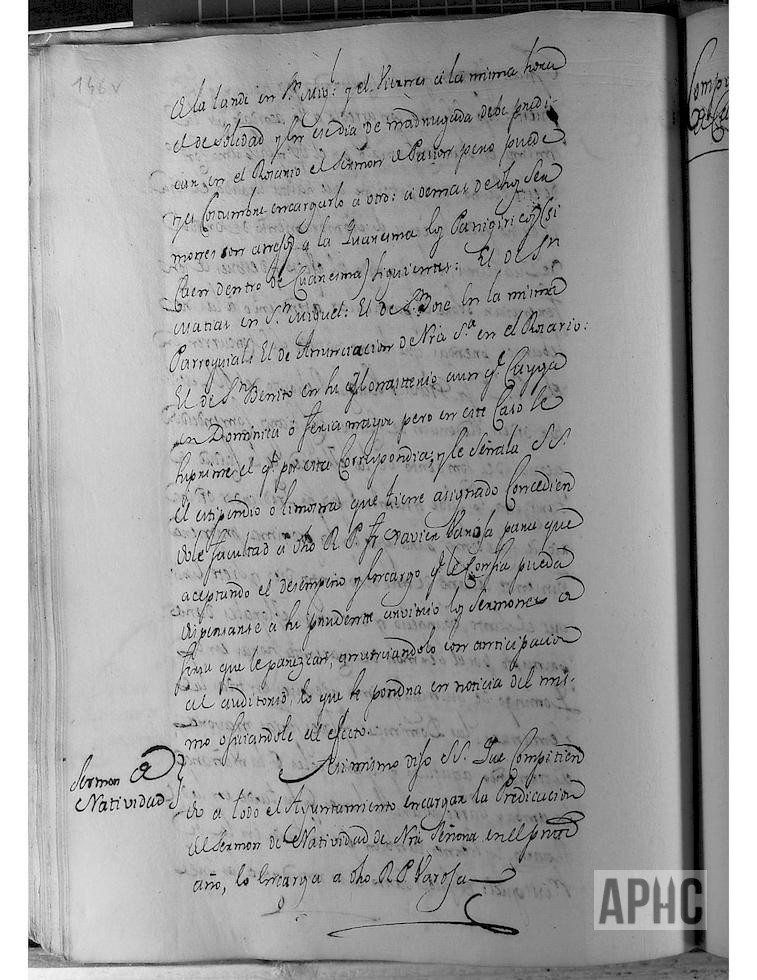 146v
a la tarde en Sn. Migl: y el Viernes a la misma hora
el de Soledad y en ese dia de madrugada debe predi-
car en el Rosario el Sermon de Pasion pero puede
encargarlo a otro: a demas de
la Quaresma los Panigiricos (si
caen dentro de Cuaresma) siguientes: El de Sn
Matias en Sn. Miguel: El de Sn. Jose en la misma
Parroquial: El de Anunciacion de Nra Sra. en el Rosario:
El de Sn. Benito en su Monasterio aun qe. Cayga
en Dominica ò feria mayor pero en este Caso se
suprime el qe. por esta Correspondia; y le señala S.S.
el estipendio o limosna que tiene asignado Concedien
dole facultad a dho R. P. fr. Xavier para que
aceptando el desempeño y encargo qe. le Confia pueda
dispensarse a su prudente arvitrio los Sermones de
feria que le parezcan, anunciandolo con anticipacion
al auditorio, lo que se pondra en noticia del mis-
mo oficiandole al efecto.
Sermon de
Natividad
Asimismo dijo S.S. Que Compitien
do a todo el Ayuntamiento encargar la Predicacion
del Sermon de Natividad de Nra Señora en el
año, lo encarga a dho R. P.
Compr
APHC